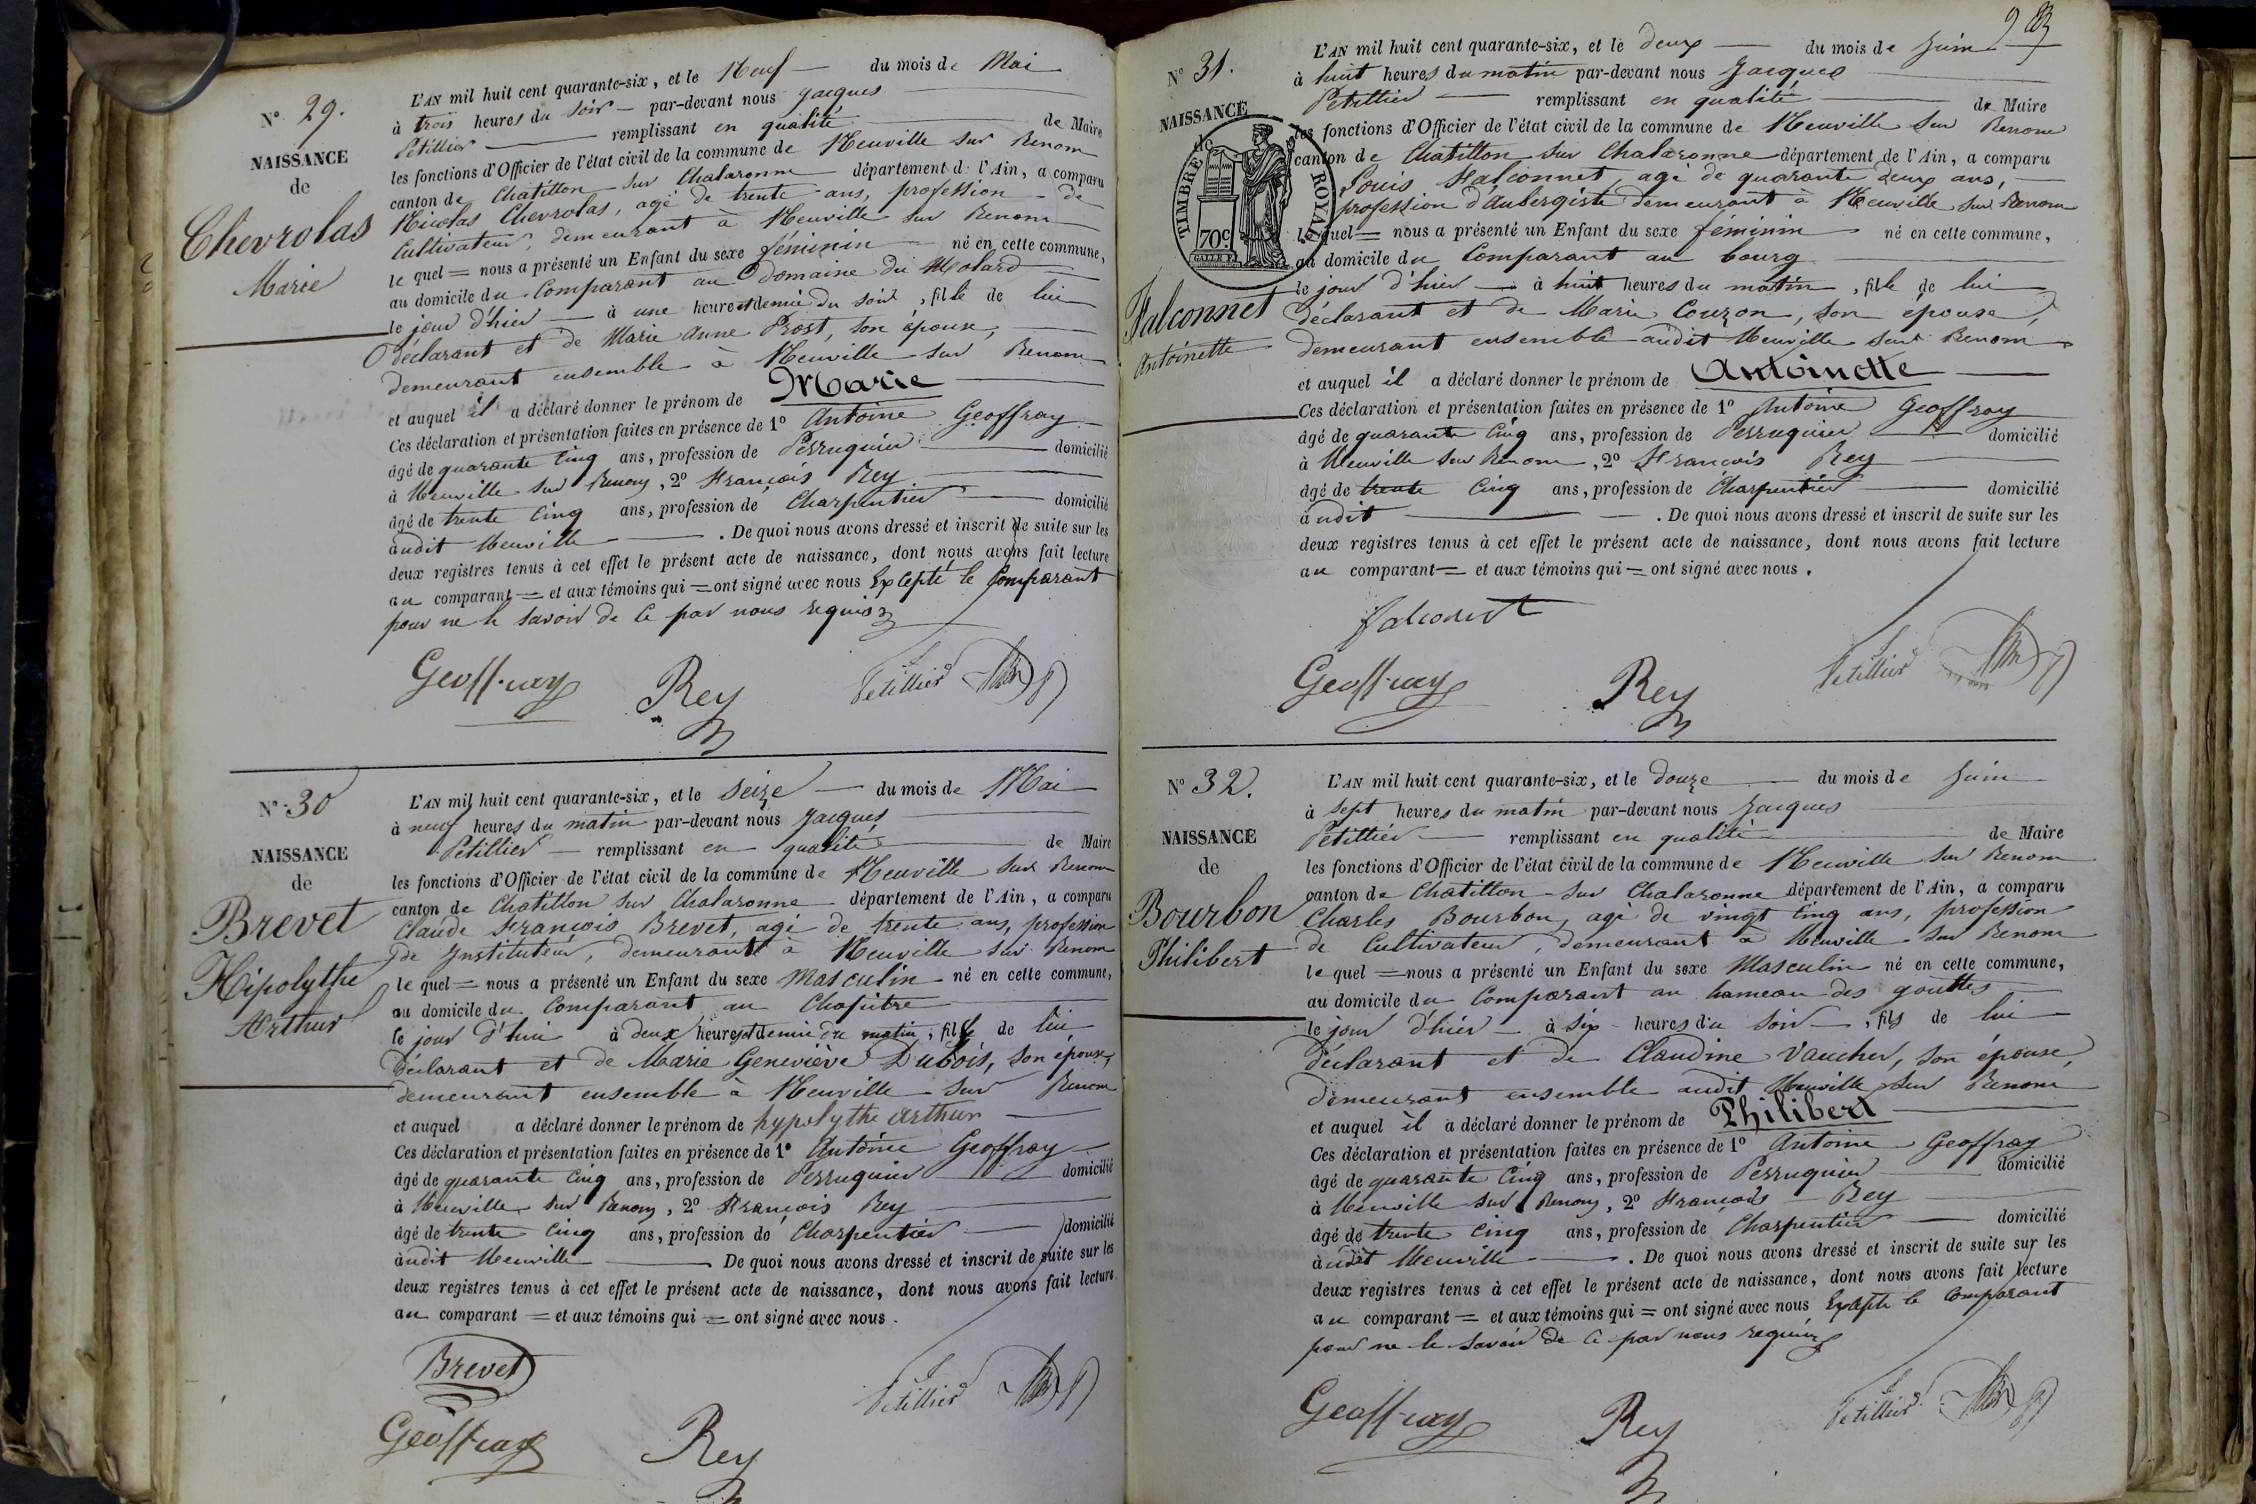 N° 29.
NAISSANCE
de
Chevrolas
Marie
L'AN mil huit cent quarante-six, et le Neuf du mois de Mai
à trois heures du soir par-devant nous Jacques
Petillier remplissant en qualité de Maire
les fonctions d'Officier de l'état civil de la commune de Neuville sur Renom
canton de Chatillon sur Chalaronne département d. l'Ain, a comparu
Nicolas Chevrolas, agé de trente ans, profession de
Cultivateur, demeurant à Neuville sur Renom
le quel = nous a présenté un Enfant du sexe féminin né en cette commune,
au domicile du Comparant au Domaine du Molard
le jour d'hier à une heure et demie du soir, fille de lui
déclarant et de Marie Anne Prost, son épouse,
demeurant ensemble à Neuville sur Renom
et auquel il a déclaré donner le prénom de Marie
Ces déclaration et présentation faites en présence de 1° Antoine Geoffray
âgé de quarante cinq ans, profession de Perruquier domicilié
à Neuville sur Renom, 2° François Rey
âgé de trente cinq ans, profession de Charpentier domicilié
audit Neuville . De quoi nous avons dressé et inscrit de suite sur les
deux registres tenus à cet effet le présent acte de naissance, dont nous avons fait lecture
au comparant = et aux témoins qui = ont signé avec nous Excepté le Comparant
pour ne le savoir de ce par nous requis
Geoffray Rey Petillier
N° 30
NAISSANCE
de
Brevet
Hipolythe
Arthur
L'AN mil huit cent quarante-six, et le seize du mois de Mai
à neuf heures du matin par-devant nous Jacques
Petillier remplissant en qualité de Maire
les fonctions d'Officier de l'état civil de la commune de Neuville sur Renom
canton de Chatillon sur Chalaronne département de l'Ain, a comparu
Claude François Brevet, agé de trente ans, profession
de Instituteur, demeurant à Neuville sur Renom
le quel = nous a présenté un Enfant du sexe Masculin né en cette commune,
au domicile du Comparant au Chapitre
le jour d'hui à deux heures et demie du matin, fils de lui
déclarant et de Marie Geneviève Dubois, son épouse,
demeurant ensemble à Neuville sur Renom
et auquel a déclaré donner le prénom de hypolythe arthur
Ces déclaration et présentation faites en présence de 1° Antoine Geoffray
âgé de quarante cinq ans, profession de Perruquier domicilié
à Neuville sur Renom, 2° François Rey
âgé de trente cinq ans, profession de Charpentier domicilié
audit Neuville De quoi nous avons dressé et inscrit de suite sur les
deux registres tenus à cet effet le présent acte de naissance, dont nous avons fait lecture
au comparant = et aux témoins qui = ont signé avec nous.
Brevet
Geoffray Rey Petillier
N° 31.
NAISSANCE
de
TIMBRE ROYAL
70c
Falconnet
Antoinette
L'AN mil huit cent quarante-six, et le deux du mois de Juin
à huit heures du matin par-devant nous Jacques
Petillier remplissant en qualité de Maire
les fonctions d'Officier de l'état civil de la commune de Neuville sur Renom
canton de Chatillon sur Chalaronne département de l'Ain, a comparu
Louis Falconnet, agé de quarante deux ans,
profession d'Aubergiste demeurant à Neuville sur Renom
le quel = nous a présenté un Enfant du sexe féminin né en cette commune,
au domicile du Comparant au bourg
le jour d'hier à huit heures du matin, fille de lui
déclarant et de Marie Couzon, son épouse,
demeurant ensemble audit Neuville sur Renom
et auquel il a déclaré donner le prénom de Antoinette
Ces déclaration et présentation faites en présence de 1° Antoine Geoffray
âgé de quarante cinq ans, profession de Perruquier domicilié
à Neuville sur Renom, 2° François Rey
âgé de trente cinq ans, profession de Charpentier domicilié
audit . De quoi nous avons dressé et inscrit de suite sur les
deux registres tenus à cet effet le présent acte de naissance, dont nous avons fait lecture
au comparant = et aux témoins qui = ont signé avec nous.
falconet
Geoffray Rey Petillier
N° 32.
NAISSANCE
de
Bourbon
Philibert
L'AN mil huit cent quarante-six, et le douze du mois de Juin
à sept heures du matin par-devant nous Jacques
Petillier remplissant en qualité de Maire
les fonctions d'Officier de l'état civil de la commune de Neuville sur Renom
canton de Chatillon sur Chalaronne département de l'Ain, a comparu
Charles Bourbon, agé de vingt cinq ans, profession
de Cultivateur, demeurant à Neuville sur Renom
le quel = nous a présenté un Enfant du sexe Masculin né en cette commune,
au domicile du Comparant au hameau des gouttes
le jour d'hier à six heures du soir, fils de lui
déclarant et de Claudine Vaucher, son épouse,
demeurant ensemble audit Neuville sur Renom
et auquel il a déclaré donner le prénom de Philibert
Ces déclaration et présentation faites en présence de 1° Antoine Geoffray
âgé de quarante cinq ans, profession de Perruquier domicilié
à Neuville sur Renom, 2° François Rey
âgé de trente cinq ans, profession de Charpentier domicilié
audit Neuville . De quoi nous avons dressé et inscrit de suite sur les
deux registres tenus à cet effet le présent acte de naissance, dont nous avons fait lecture
au comparant = et aux témoins qui = ont signé avec nous Excepté le Comparant
pour ne le savoir de ce par nous requis
Geoffray Rey Petillier